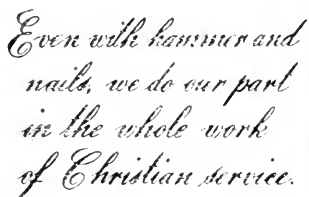 Even with hammer and
nails, we do our part
in the whole work
of Christian service.